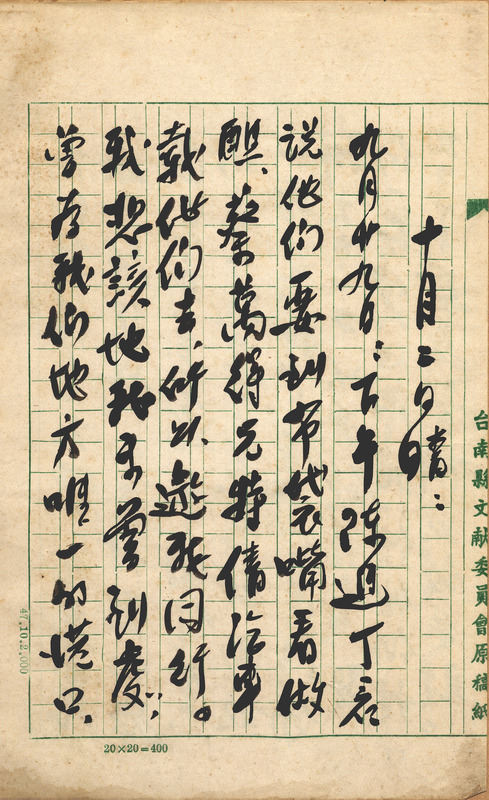 台南縣文献委員會原稿紙
十月二日晴：
九月廿九日：下午陳丁君
說他们要到布袋嘴看做
醮、蔡萬得兄特倩汽車
載他们去，所以邀我同行。
我想該地我未曾到處，
曾為我们地方唯一的港口，
47.10.2,000
20×20=400